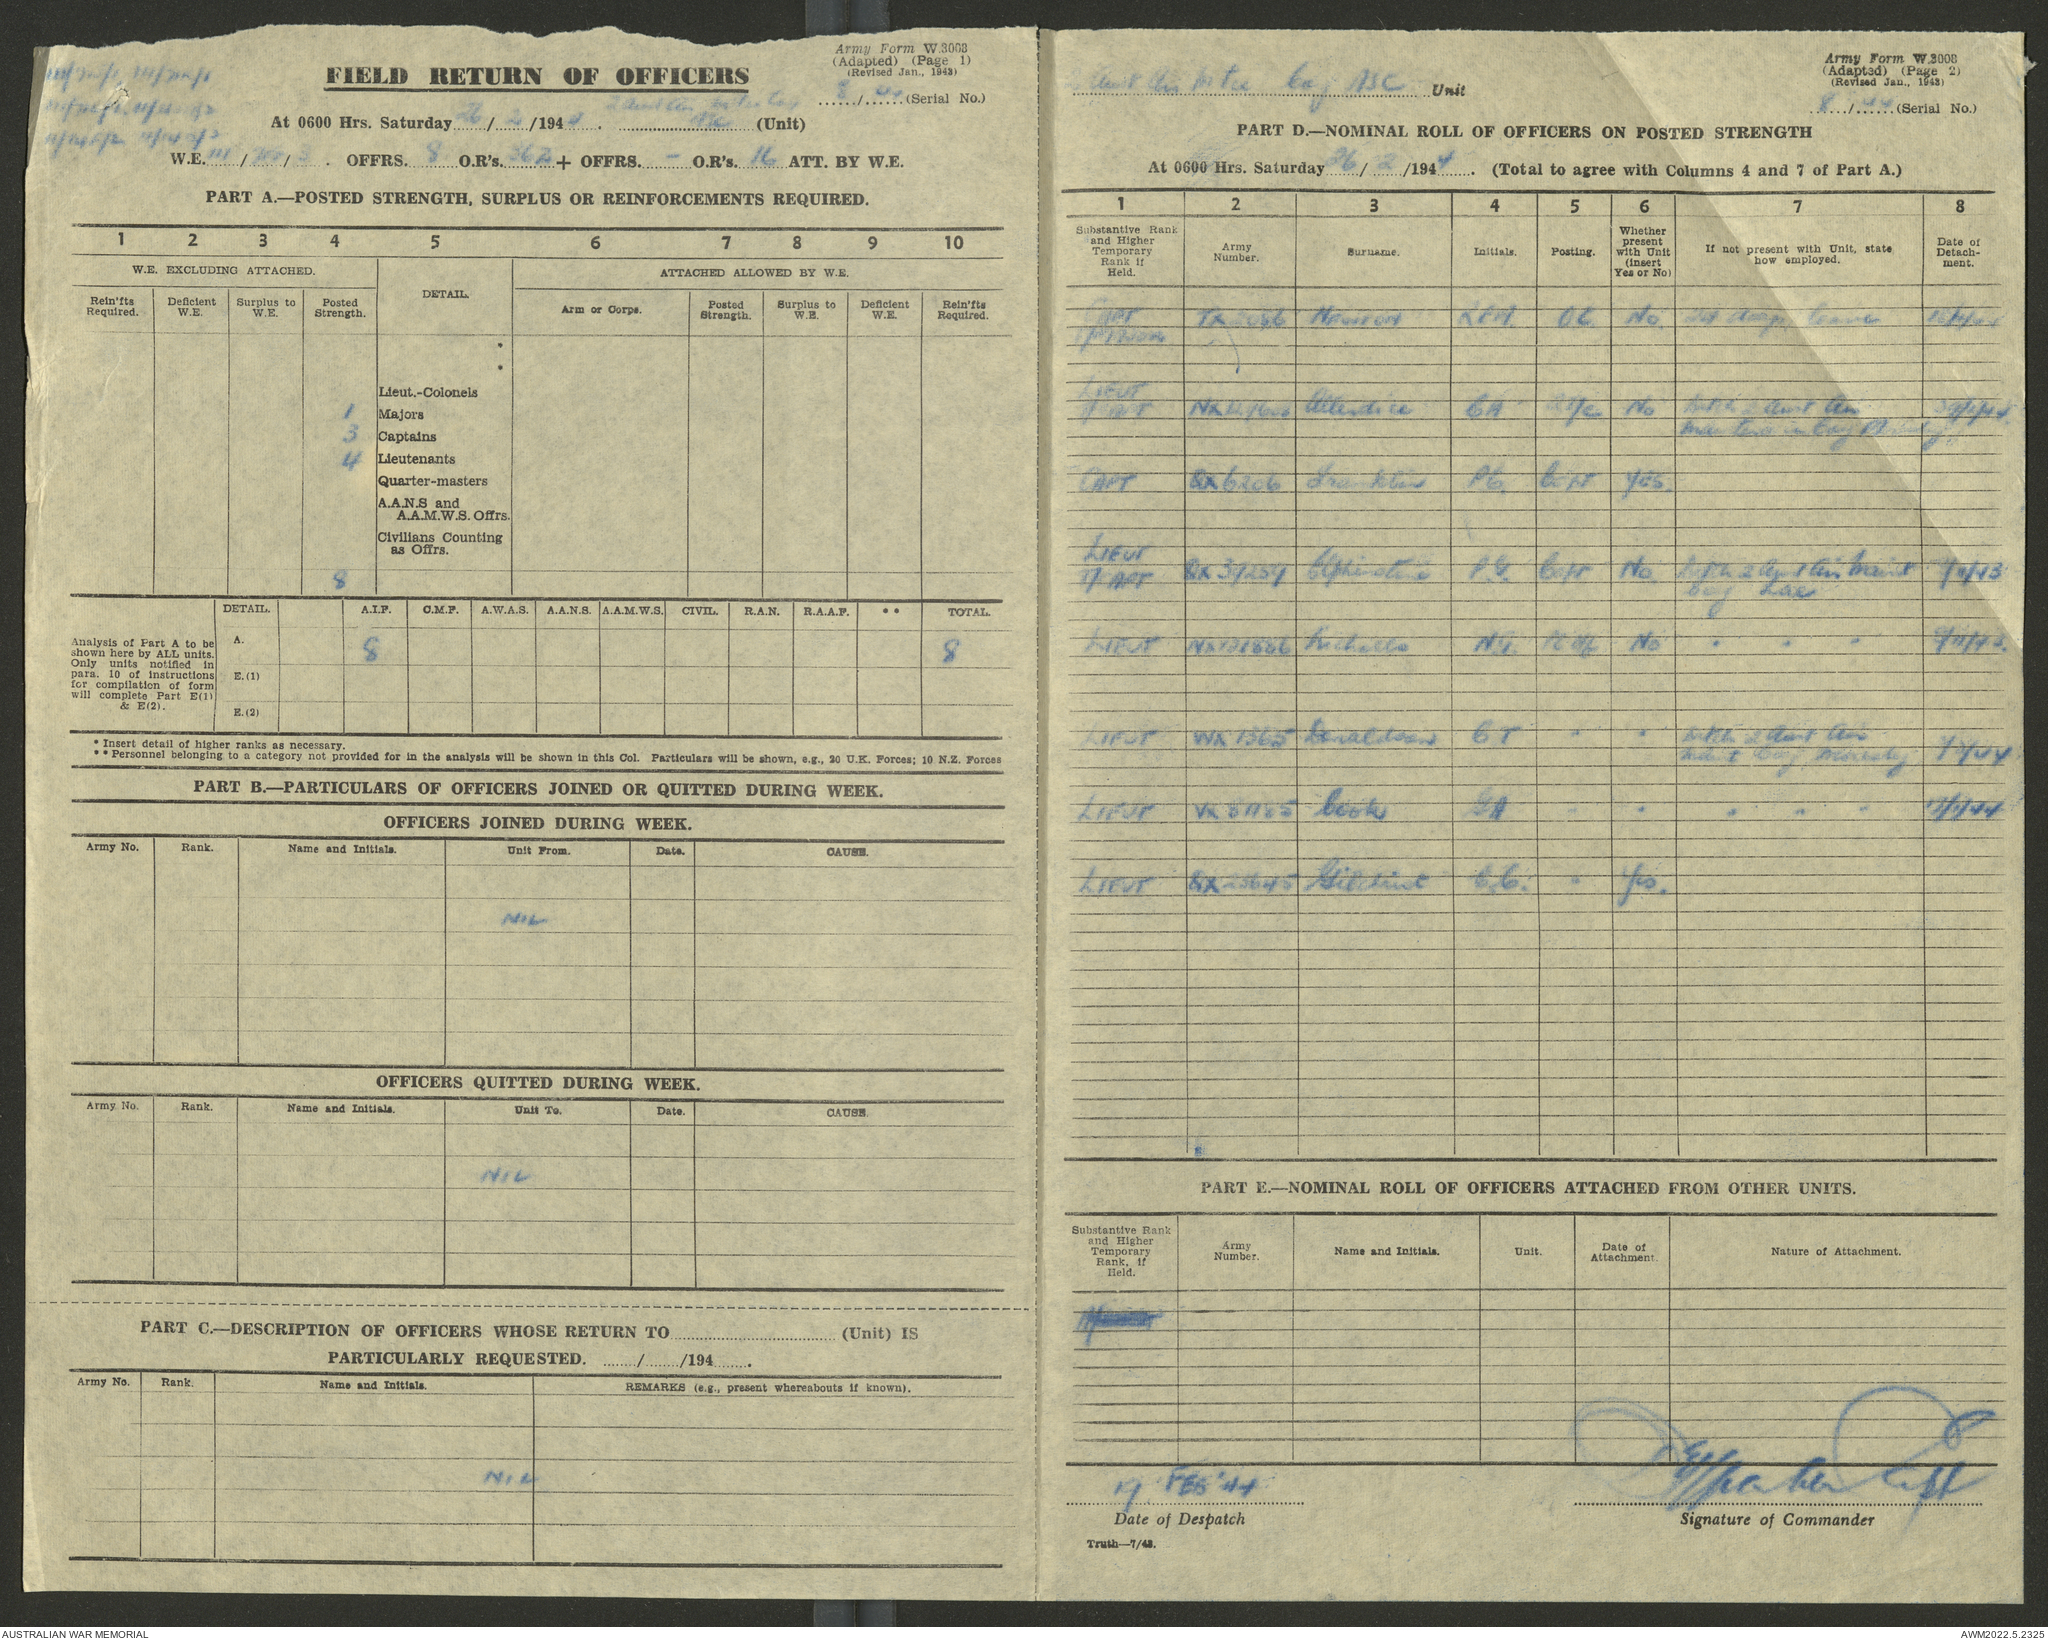 Army Form W.3008
(Adapted) (Page 1)
(Revised Jan., 1943)
FIELD RETURN OF OFFICERS
8/44 (Serial No.)
At 0600 Hrs. Saturday 26/2/1944. (Unit)
W.E. 111/ /3. OFFRS. 8 O.R's. 362 + OFFRS. – O.R's. 16 ATT. BY W.E.
PART A.—POSTED STRENGTH, SURPLUS OR REINFORCEMENTS REQUIRED.
1 2 3 4 5 6 7 8 9 10
W.E. EXCLUDING ATTACHED. DETAIL. ATTACHED ALLOWED BY W.E.
Rein'fts Required. Deficient W.E. Surplus to W.E. Posted Strength. Arm or Corps. Posted Strength. Surplus to W.E. Deficient W.E. Rein'fts Required.
*
*
Lieut.-Colonels
1 Majors
3 Captains
4 Lieutenants
Quarter-masters
A.A.N.S and
A.A.M.W.S. Offrs.
Civilians Counting
as Offrs.
8
DETAIL. A.I.F. C.M.F. A.W.A.S. A.A.N.S. A.A.M.W.S. CIVIL. R.A.N. R.A.A.F. ** TOTAL.
Analysis of Part A to be
shown here by ALL units.
Only units notified in
para. 10 of instructions
for compilation of form
will complete Part E(1)
& E(2).
A. 8 8
E.(1)
E.(2)
* Insert detail of higher ranks as necessary.
** Personnel belonging to a category not provided for in the analysis will be shown in this Col. Particulars will be shown, e.g., 20 U.K. Forces; 10 N.Z. Forces
PART B.—PARTICULARS OF OFFICERS JOINED OR QUITTED DURING WEEK.
OFFICERS JOINED DURING WEEK.
Army No. Rank. Name and Initials. Unit From. Date. CAUSE.
NIL
OFFICERS QUITTED DURING WEEK.
Army No. Rank. Name and Initials. Unit To. Date. CAUSE.
NIL
PART C.—DESCRIPTION OF OFFICERS WHOSE RETURN TO (Unit) IS
PARTICULARLY REQUESTED. / /194 .
Army No. Rank. Name and Initials. REMARKS (e.g., present whereabouts if known).
NIL
Army Form W.3008
(Adapted) (Page 2)
(Revised Jan., 1943)
2 Aust Air Mtce Coy ASC Unit
8/44 (Serial No.)
PART D.—NOMINAL ROLL OF OFFICERS ON POSTED STRENGTH
At 0600 Hrs. Saturday 26/2/1944. (Total to agree with Columns 4 and 7 of Part A.)
1 2 3 4 5 6 7 8
Substantive Rank and Higher Temporary Rank if Held. Army Number. Surname. Initials. Posting. Whether present with Unit (insert Yes or No) If not present with Unit, state how employed. Date of Detachment.
CAPT Newton OC. No. Leave
LIEUT
T/CAPT CA No 2 Aust Air
CAPT QX6206 Franklin Capt Yes.
LIEUT
T/CAPT QX37257 Elphinstone Capt No. 2 Aust Air Maint
Coy Lae
LIEUT Nicholls No " " "
LIEUT WX1565 Donaldson CT " " 2 Aust Air
Maint Coy Moresby
LIEUT VX81185 Cook " " " " "
LIEUT QX23645 Gilchrist C.C. " Yes.
PART E.—NOMINAL ROLL OF OFFICERS ATTACHED FROM OTHER UNITS.
Substantive Rank and Higher Temporary Rank, if Held. Army Number. Name and Initials. Unit. Date of Attachment. Nature of Attachment.
FEB '44
Date of Despatch
Signature of Commander
Truth—7/43.
AUSTRALIAN WAR MEMORIAL
AWM2022.5.2325